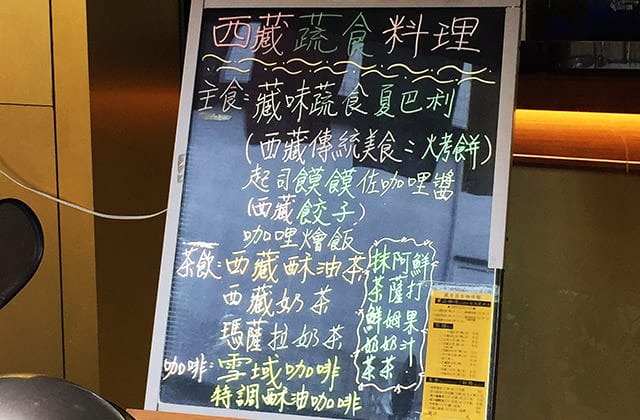 西藏蔬食料理
主食:藏味蔬食夏巴利
(西藏傳統美食:烤餅)
起司饃饃佐咖哩醬
(西藏餃子)
咖哩燴飯
茶飲:西藏酥油茶
西藏奶茶
瑪薩拉奶茶
抹茶鮮奶茶
阿薩姆奶茶
鮮打果汁
咖啡:雪域咖啡
特調酥油咖啡